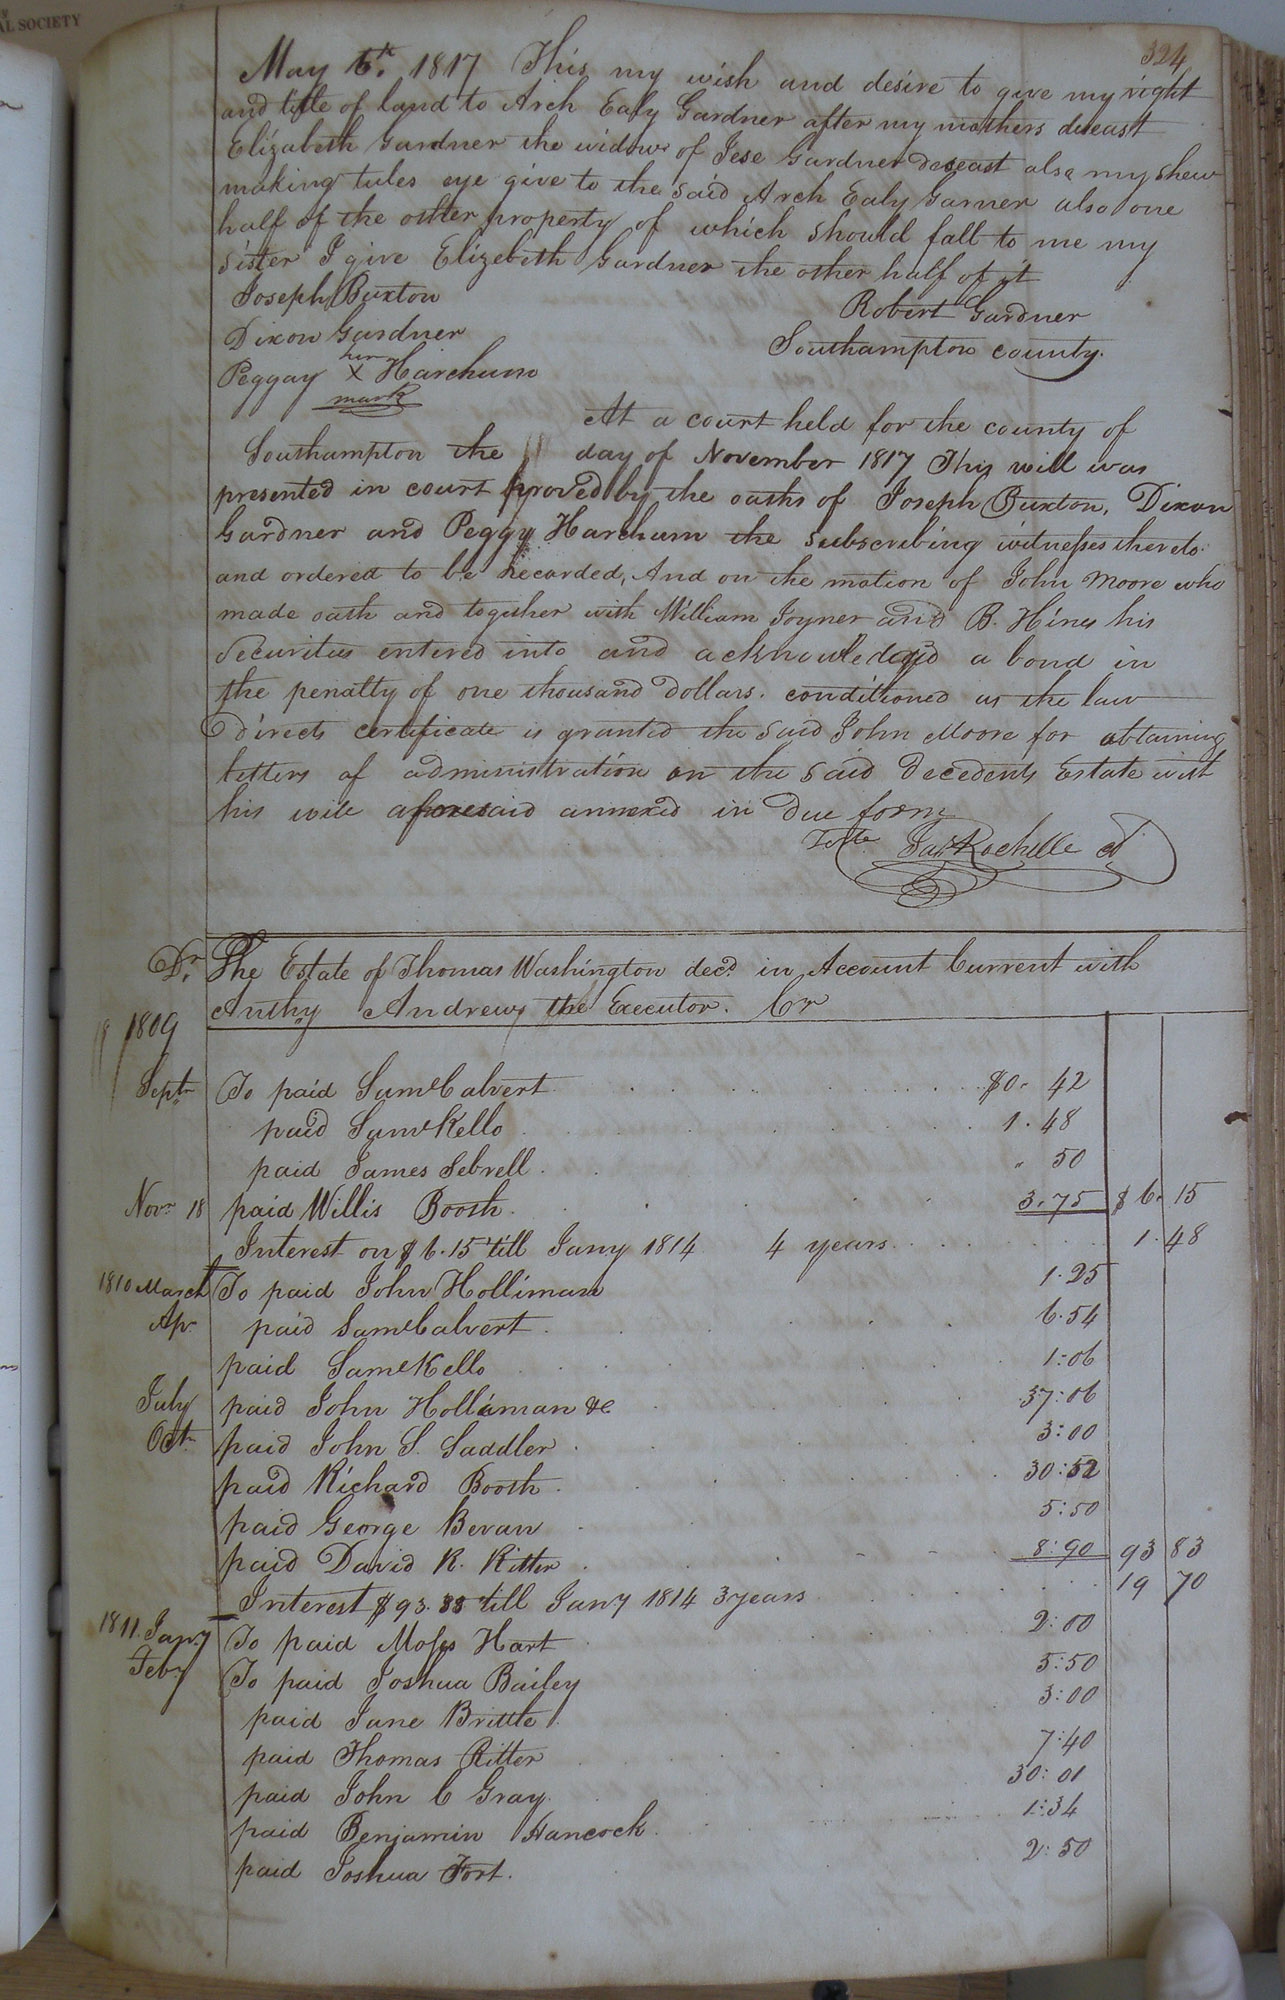 AL SOCIETY
324
May 6th. 1817 This my wish and desire to give my right
and title of land to Arch Ealy Gardner after my mothers deseast
Elizabeth Gardner the widow of Jese Gardner deseast also my shew
making tules eye give to the said Arch Ealy Garner also one
half of the other property of which should fall to me my
sister I give Elizebeth Gardner the other half of it
Joseph Buxton
Robert Gardner
Dixon Gardner
Southampton county.
her
Peggay X Harchum
mark
At a court held for the county of
Southampton the day of November 1817 This will was
presented in court proved by the oaths of Joseph Buxton, Dixon
Gardner and Peggy Harchum the subscribing witnesses thereto
and ordered to be Recorded, And on the motion of John Moore who
made oath and together with William Joyner and B. Hines his
securities entered into and acknowledged a bond in
the penalty of one thousand dollars. conditioned as the law
directs certificate is granted the said John Moore for obtaining
letters of administration on the said Decedents Estate with
his will aforesaid annexed in due form
Teste Jas Rochelle cl
Dr. The Estate of Thomas Washington decd. in Account Current with
Anthy Andrews the Executor. Cr
1809
Septr To paid Saml Calvert $0. 42
paid Saml Kello 1. 48
paid James Sebrell . " 50
Novr 18 paid Willis Booth 3.75 $6. 15
Interest on $6.15 till Jany 1814 4 years 1. 48
1810 March To paid John Holliman 1.25
Apr paid Saml Calvert 6.54
paid Saml Kello 1:06
July paid John Holliman &c 37:06
Octr paid John S. Saddler 3:00
paid Richard Booth 30:52
paid George Bevan 5:50
paid David R. Ritter 8:90 93 83
Interest $93.83 till Jany 1814 3 years 19 70
1811 Jany To paid Moses Hart 2:00
Feby To paid Joshua Bailey 5:50
paid Jane Brittle 3:00
paid Thomas Ritter 7:40
paid John C Gray 30:01
paid Benjamin Hancock 1:34
paid Joshua Fort. 2:50